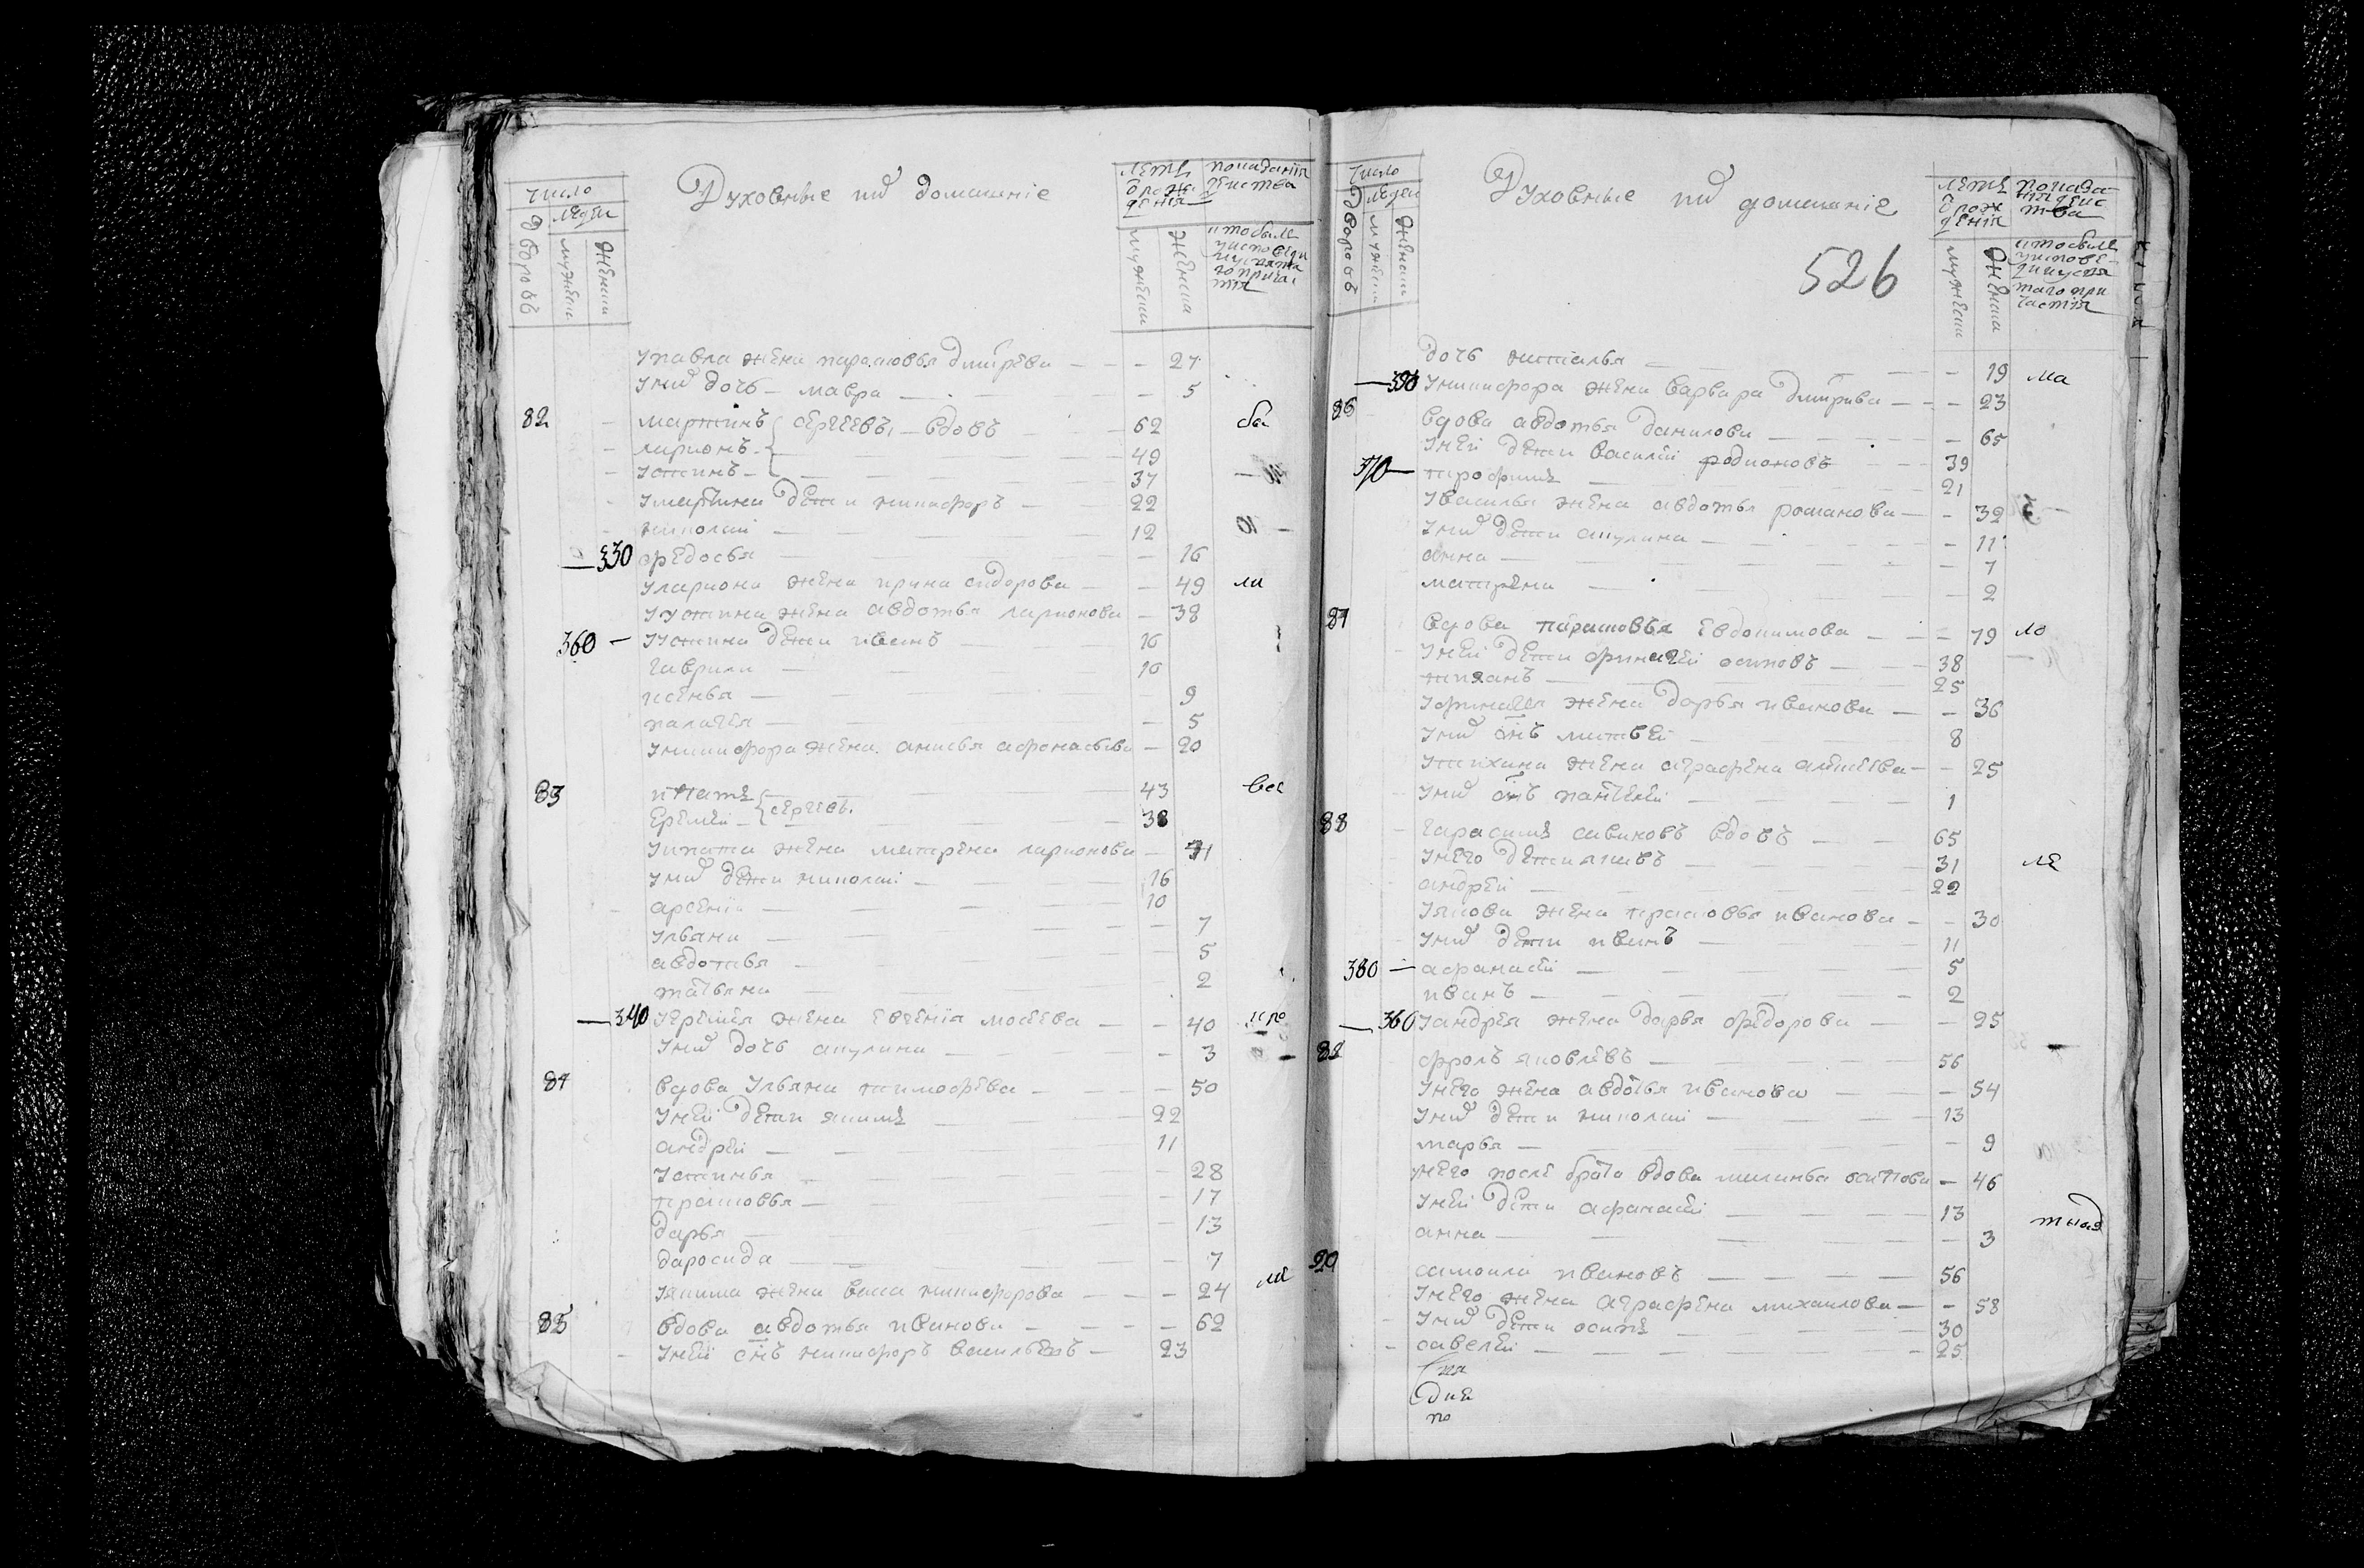 число
Духовные и домашніе
лета от рождения
показаніи действа
дворовъ
людеи
мужеска
женска
мужеска
женска
кто были у исповеди и у святаго причастия
у павла жена парасковья дмитрева 27
у них дочь мавра 5
82 мартинъ сергеевъ вдовъ 62 бы
ларионъ 49
устинъ 37
у мартина дети никифоръ 22
николаи 12
330 федосья 16
у лариона жена ирина сидорова 49 ли
у устина жена авдотья ларионова 38
360 у устина дети иванъ 16
гаврила 10
ксенья 9
палагея 5
у никифора жена анисья афонасьева 20
83 ипатъ сергеевы 43 все
еремеи 38
у ипата жена матрена ларионова 41
у них дети николаи 16
арсении 10
ульяна 7
авдотья 5
татьяна 2
340 у еремея жена евгения мосеева 40
у них дочь акулина 3
84 вдова ульяна тимофева 50
у неи дети якимъ 22
андреи 11
устинья 28
прасковья 17
дарья 13
даросида 7
у якима жена васа никифорова 24
85 вдова авдотья иванова 62
у неи снъ никифоръ васильевъ 23
число
Духовные и домашніе
526
лета от рождения
показания действа
дворовъ
людеи
мужеска
женска
мужеска
женска
кто были у исповеди и у святаго причастия
дочь наталья 19 ма
350 у никифора жена варвара дмитрива 23
86 вдова авдотья данилова 65
у неи дети василеи родионовъ 39
370 трофимъ 21
у василья жена авдотья романова 32
у них дети акулина 11
анна 7
матрена 2
87 вдова парасковья евдокимова 79 ло
у неи дети финагеи осиповъ 38
тиханъ 25
у финагея жена дарья иванова 36
у них снъ матвеи 8
у тихана жена аграфена алексеева 25
у них снъ пантелеи 1
88 гарасимъ савиновъ вдовъ 65
у него дети яковъ 31 ле
андреи 22
у якова жена прасковья иванова 30
у них дети иванъ 11
380 афанасеи 5
иванъ 2
360 у андрея жена дарья федорова 25
фролъ яковлевъ 56
у него жена авдотья иванова 54
у них дети николаи 13
марья 9
у него после брата вдова маланья осипова 46
у неи дети афанасеи 13
анна 3
самоила ивановъ 56
у него жена аграфена михаилова 58
у них дети осипъ 30
савелеи 25
дни
по